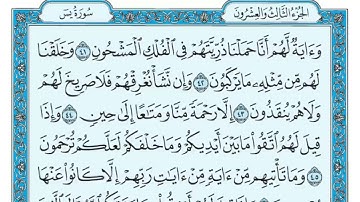 الجزء الثالث والعشرون سورة يس
وَءَايَةٌ لَّهُمْ أَنَّا حَمَلْنَا ذُرِّيَّتَهُمْ فِي الْفُلْكِ الْمَشْحُونِ ٤١ وَخَلَقْنَا
لَهُم مِّن مِّثْلِهِ مَا يَرْكَبُونَ ٤٢ وَإِن نَّشَأْ نُغْرِقْهُمْ فَلَا صَرِيخَ لَهُمْ
وَلَا هُمْ يُنقَذُونَ ٤٣ إِلَّا رَحْمَةً مِّنَّا وَمَتَاعًا إِلَىٰ حِينٍ ٤٤ وَإِذَا
قِيلَ لَهُمُ اتَّقُوا مَا بَيْنَ أَيْدِيكُمْ وَمَا خَلْفَكُمْ لَعَلَّكُمْ تُرْحَمُونَ
٤٥ وَمَا تَأْتِيهِم مِّنْ ءَايَةٍ مِّنْ ءَايَاتِ رَبِّهِمْ إِلَّا كَانُوا عَنْهَا